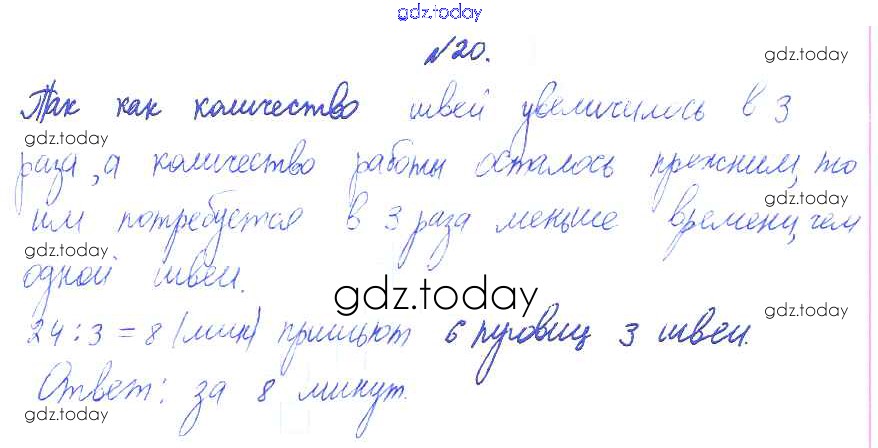 gdz.today
№20.
gdz.today
Так как количество швей увеличилось в 3
gdz.today
раза, а количество работы осталось прежним, то
им потребуется в 3 раза меньше времени, чем
gdz.today
одной швеи.
gdz.today
gdz.today
24 : 3 = 8 (мин) пришьют 6 пуговиц 3 швеи.
Ответ: за 8 минут.
gdz.today
gdz.today